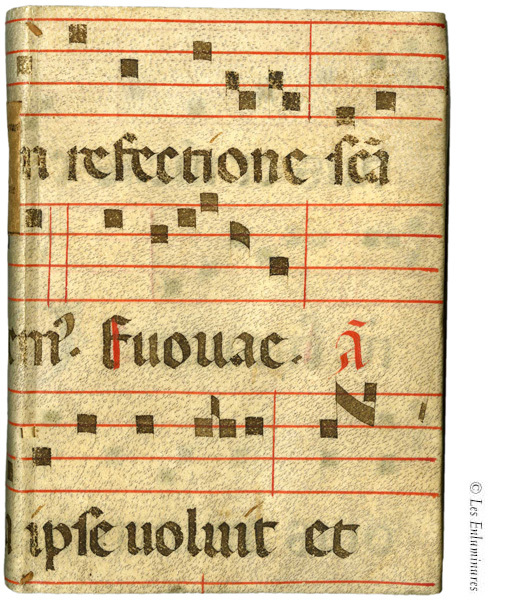 n refectione scā
emꝰ. Euouae. ā
ipse uoluit et
© Les Enluminures